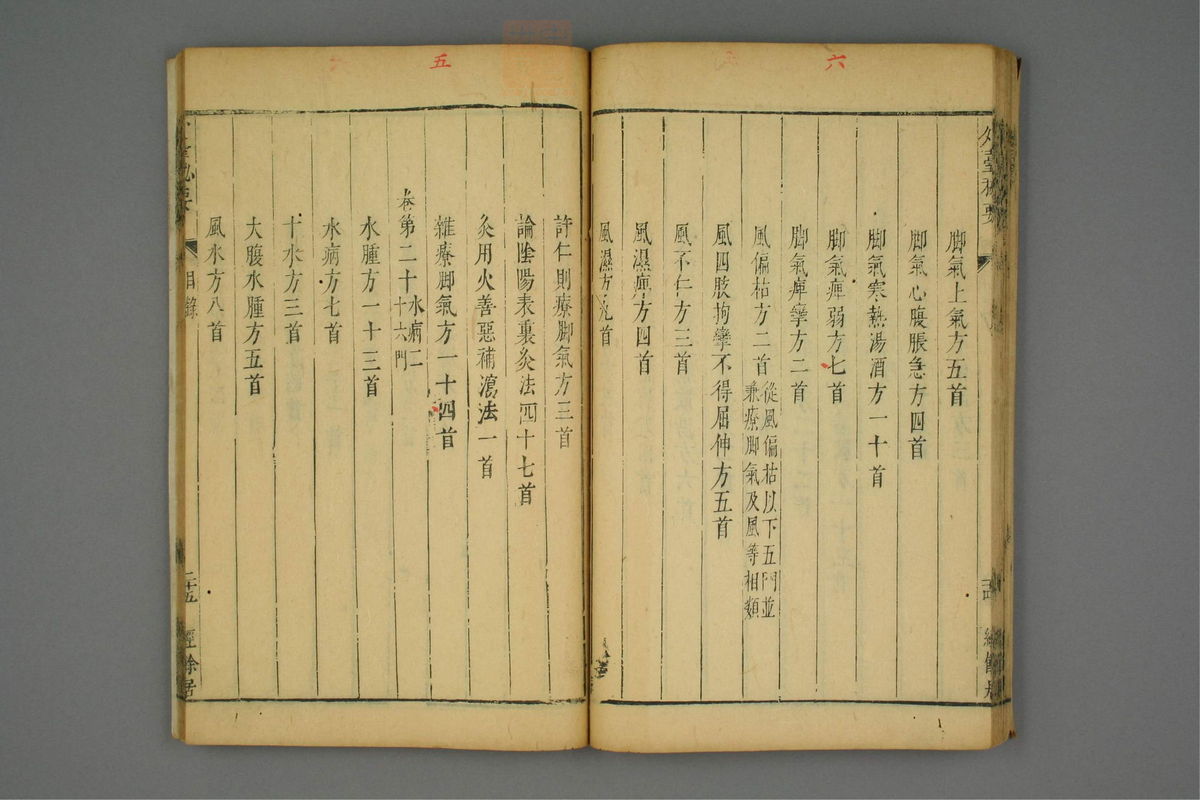 六
外臺秘要
脚氣上氣方五首
脚氣心腹脹急方四首
脚氣寒熱湯酒方一十首
脚氣痺弱方七首
脚氣痺攣方二首
風偏枯方二首從風偏枯以下五門並兼療脚氣及風等相類
風四肢拘攣不得屈伸方五首
風不仁方三首
風濕痺方四首
風濕方九首
五
許仁則療脚氣方三首
論陰陽表裏灸法四十七首
灸用火善惡補瀉法一首
雜療脚氣方一十四首
卷第二十水病二十六門
水腫方一十三首
水病方七首
十水方三首
大腹水腫方五首
風水方八首
目錄
二十五
經餘居